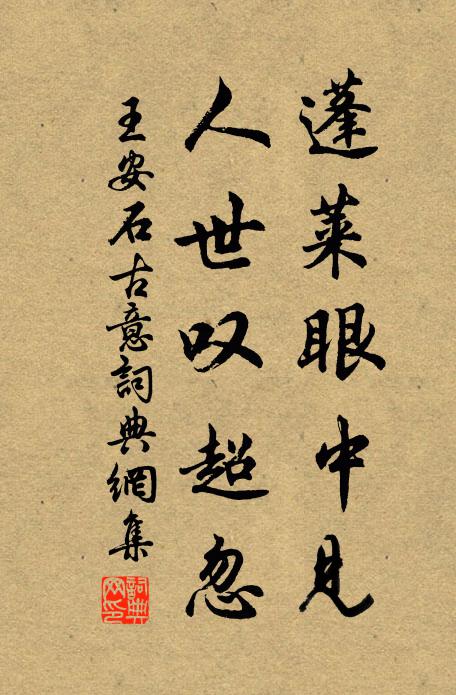 蓬莱眼中見
人世叹超忽
王安石古意詞典網集
詞典网印